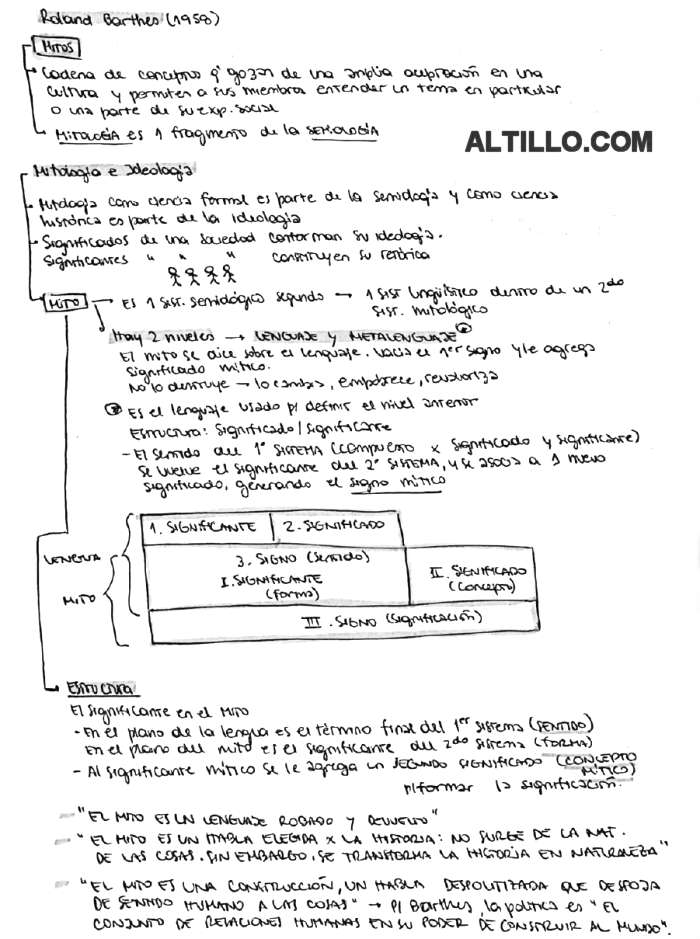 Roland Barthes (1958)
MITOS
Cadena de conceptos q' gozan de una amplia aceptación en una
cultura y permiten a sus miembros entender un tema en particular
o una parte de su exp. social
MITOLOGÍA es 1 fragmento de la SEMIOLOGÍA
ALTILLO.COM
Mitología e Ideología
Mitología como ciencia formal es parte de la semiología y como ciencia
histórica es parte de la ideología
Significados de una sociedad conforman su ideología.
Significantes " " " constituyen su retórica
MITO → ES 1 SIST. semiológico segundo → 1 SIST lingüístico dentro de un 2do
SIST. mitológico
Hay 2 niveles → LENGUAJE y METALENGUAJE
El mito se dice sobre el lenguaje. Vacía el 1er signo y le agrega
significado mítico.
No lo destruye → lo cambia, empobrece, revaloriza
Es el lenguaje usado p/ definir el nivel anterior
Estructura: significado/significante
- El sentido del 1° SISTEMA (compuesto x significado y significante)
se vuelve el significante del 2° SISTEMA, y se asocia a 1 nuevo
significado, generando el signo mítico
1. SIGNIFICANTE 2. SIGNIFICADO
LENGUA
3. SIGNO (sentido)
I. SIGNIFICANTE
(forma)
II. SIGNIFICADO
(concepto)
MITO
III. SIGNO (significación)
ESTRUCTURA
El significante en el MITO
- En el plano de la lengua es el término final del 1er sistema (SENTIDO)
En el plano del mito es el significante del 2do sistema (FORMA)
- Al significante mítico se le agrega un SEGUNDO SIGNIFICADO (CONCEPTO
MÍTICO)
p/formar la significación.
- "EL MITO ES UN LENGUAJE ROBADO Y DEVUELTO"
- "EL MITO ES UN HABLA ELEGIDA X LA HISTORIA: NO SURGE DE LA NAT.
DE LAS COSAS. SIN EMBARGO, SE TRANSFORMA LA HISTORIA EN NATURALEZA"
- "EL MITO ES UNA CONSTRUCCIÓN, UN HABLA DESPOLITIZADA QUE DESPOJA
DE SENTIDO HUMANO A LAS COSAS" → P/ Barthes, la política es "EL
CONJUNTO DE RELACIONES HUMANAS EN SU PODER DE CONSTRUIR AL MUNDO".